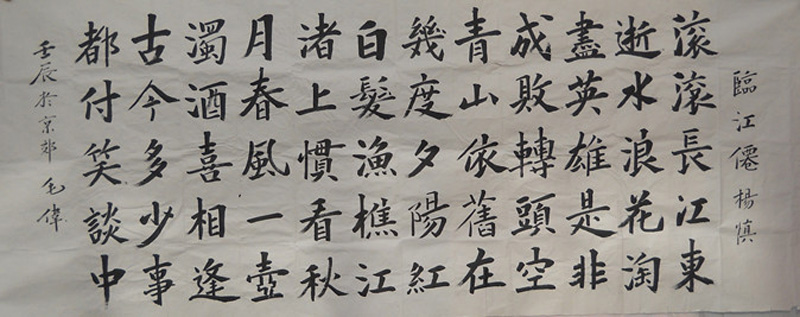 臨江僊 楊慎
滚滚長江東
逝水浪花淘
盡英雄是非
成敗轉頭空
青山依舊在
幾度夕陽紅
白髮漁樵江
渚上慣看秋
月春風一壺
濁酒喜相逢
古今多少事
都付笑談中
壬辰於京郊 毛偉